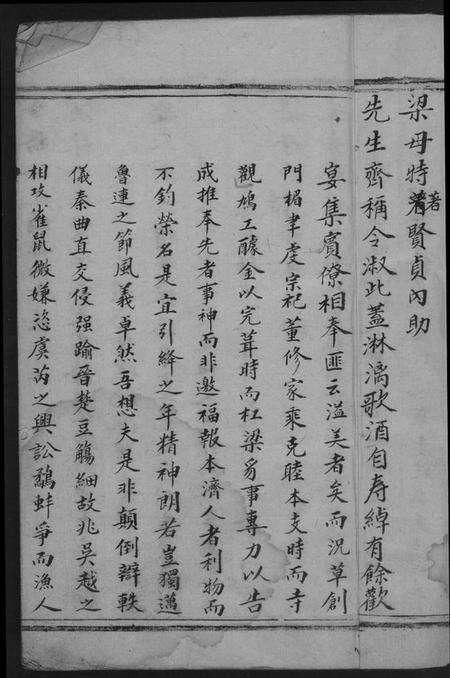 梁母特著賢貞內助
先生齊稱令淑此蓋淋漓歌酒自壽綽有餘歡
宴集賓僚相奉匪云溢美者矣而況草創
門楣聿虔宗祀董修家乘克睦本支時而寺
觀鳩工醵金以完葺時而杠梁易事專力以告
成推奉先者事神而非邀福報本濟人者利物而
不釣榮名是宜引絳之年精神朗若豈獨邁
魯連之節風義卓然吾想夫是非顛倒辯軼
儀秦曲直交侵强踰晉楚豆觴細故兆吳越之
相攻雀鼠微嫌恣虞芮之興訟鷸蚌爭而漁人